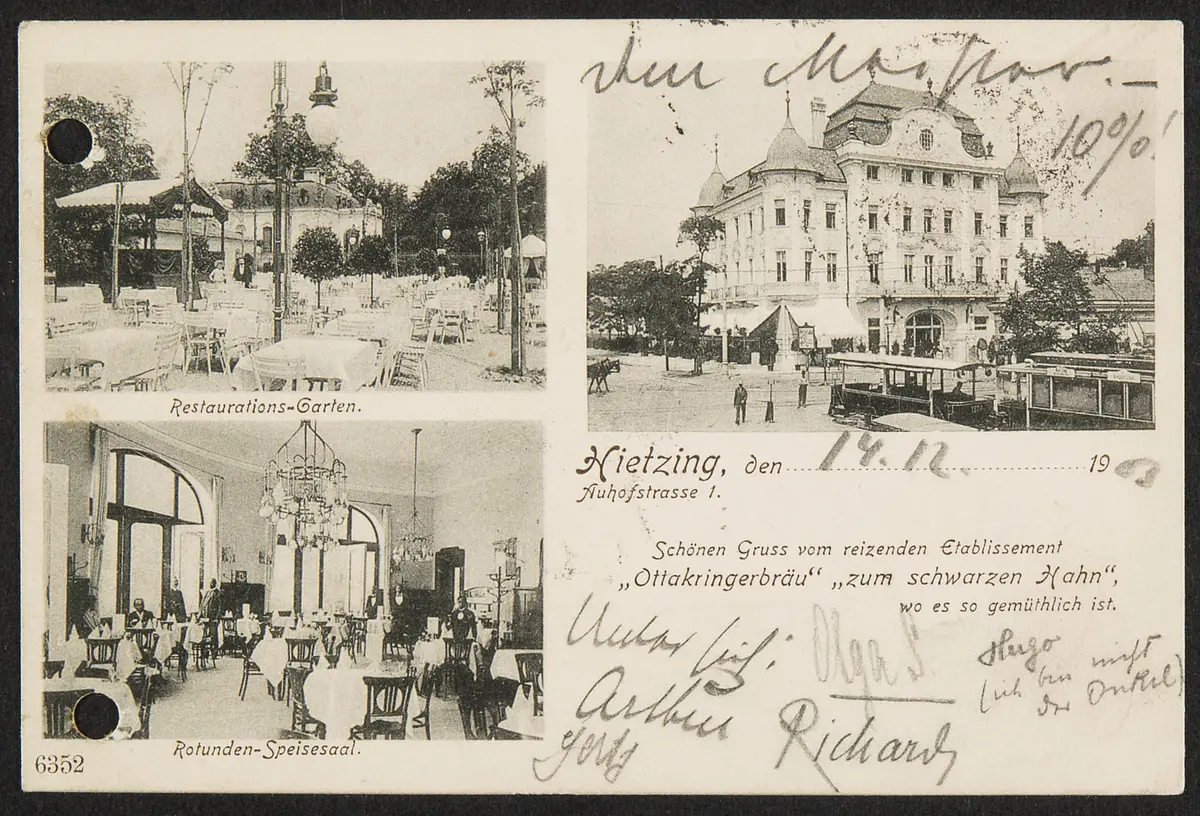 dem Masseur. —
10%!
Restaurations-Garten.
Hietzing, den 14.12. 190
Auhofstrasse 1.
Schönen Gruss vom reizenden Etablissement
„Ottakringerbräu“ „zum schwarzen Hahn“,
wo es so gemüthlich ist.
Olga S.
Hugo
(ich bin nicht
der Onkel)
Arthur
Richard
Rotunden-Speisesaal.
6352